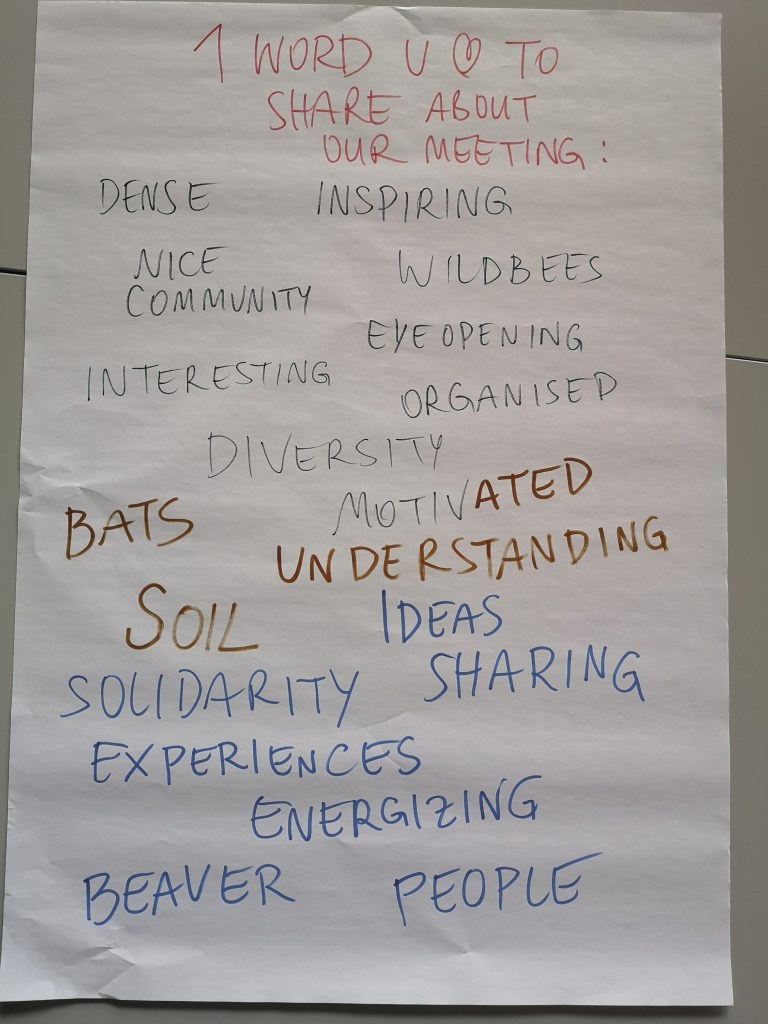 1 WORD U ♡ TO
SHARE ABOUT
OUR MEETING:
DENSE INSPIRING
NICE
COMMUNITY
WILDBEES
EYEOPENING
INTERESTING
ORGANISED
DIVERSITY
MOTIVATED
BATS
UNDERSTANDING
SOIL
IDEAS
SHARING
SOLIDARITY
EXPERIENCES
ENERGIZING
BEAVER PEOPLE